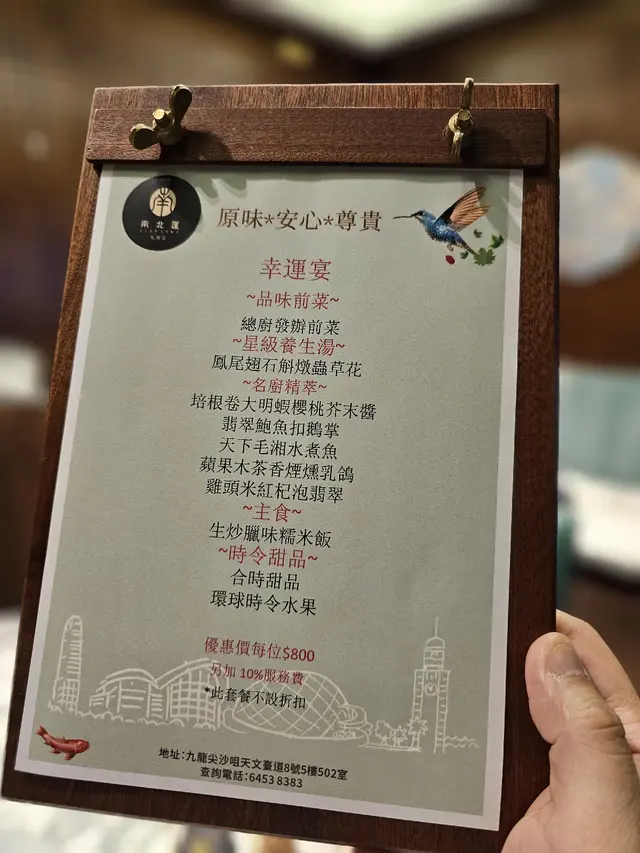 南北匯
原味*安心*尊貴
幸運宴
~品味前菜~
總廚發辦前菜
~星級養生湯~
鳳尾翅石斛燉蟲草花
~名廚精萃~
培根卷大明蝦櫻桃芥末醬
翡翠鮑魚扣鵝掌
天下毛湘水煮魚
蘋果木茶香煙燻乳鴿
雞頭米紅杞泡翡翠
~主食~
生炒臘味糯米飯
~時令甜品~
合時甜品
環球時令水果
優惠價每位$800
另加 10%服務費
*此套餐不設折扣
地址:九龍尖沙咀天文臺道8號5樓502室
查詢電話:6453 8383